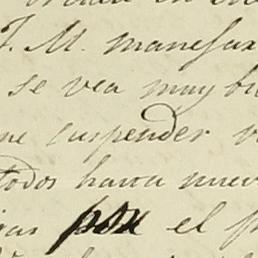 J. M. manefax
se vea muy bu
me suspender v
todos hasta nuev
ias por el p